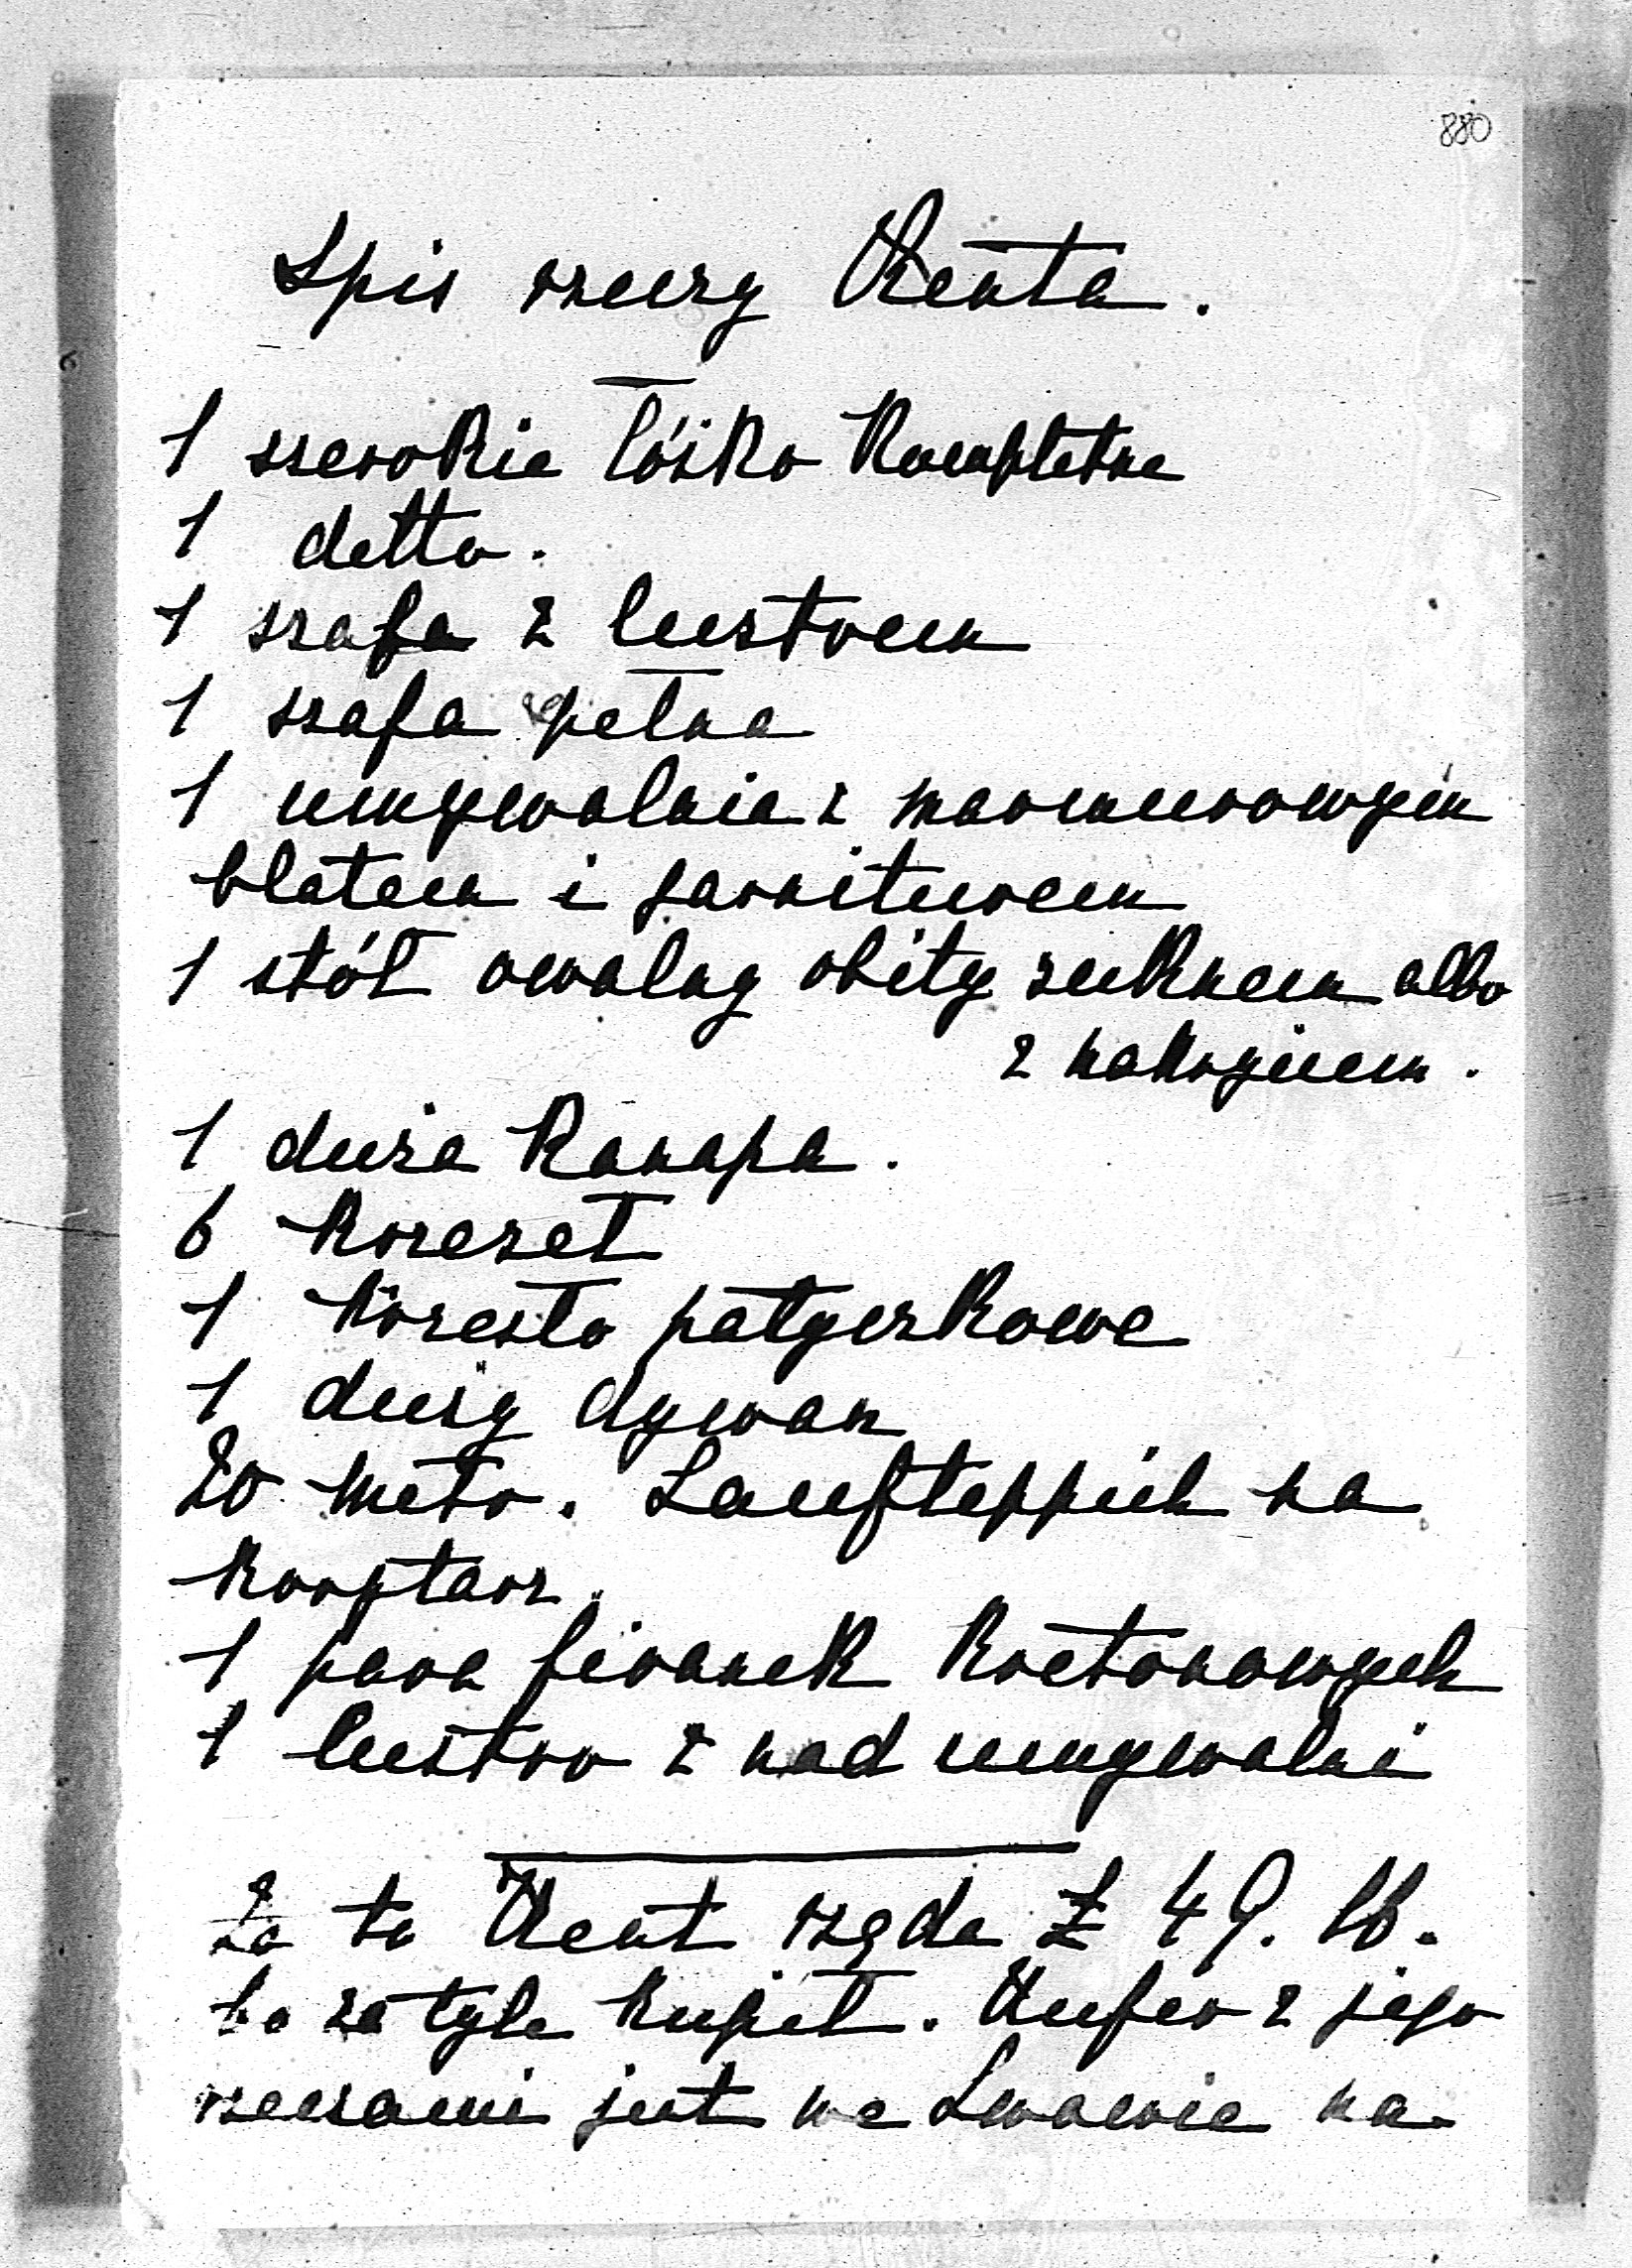 880
Spis rzeczy Kenta.
1 szerokie łóżko kompletne
1 detto.
1 szafa z lustrem
1 szafa pełna
1 umywalnia z marmurowym
blatem i garniturem
1 stół owalny obity suknem albo
z nakryciem.
1 duża kanapa.
6 krzeseł
1 krzesło patyczkowe
1 duży dywan
20 metr. Laufteppich na
korytarz.
1 para firanek kretonowych
1 lustro z nad umywalni
Za to Kent rząda £ 49. lb.
bo za tyle kupił. Kufer z jego
rzeczami jest we Lwowie na